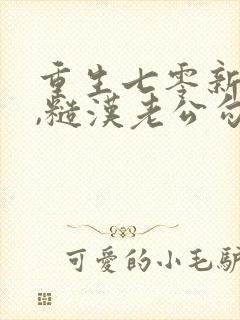 重生七零新
,糙漢老公勾
可愛的小毛驢